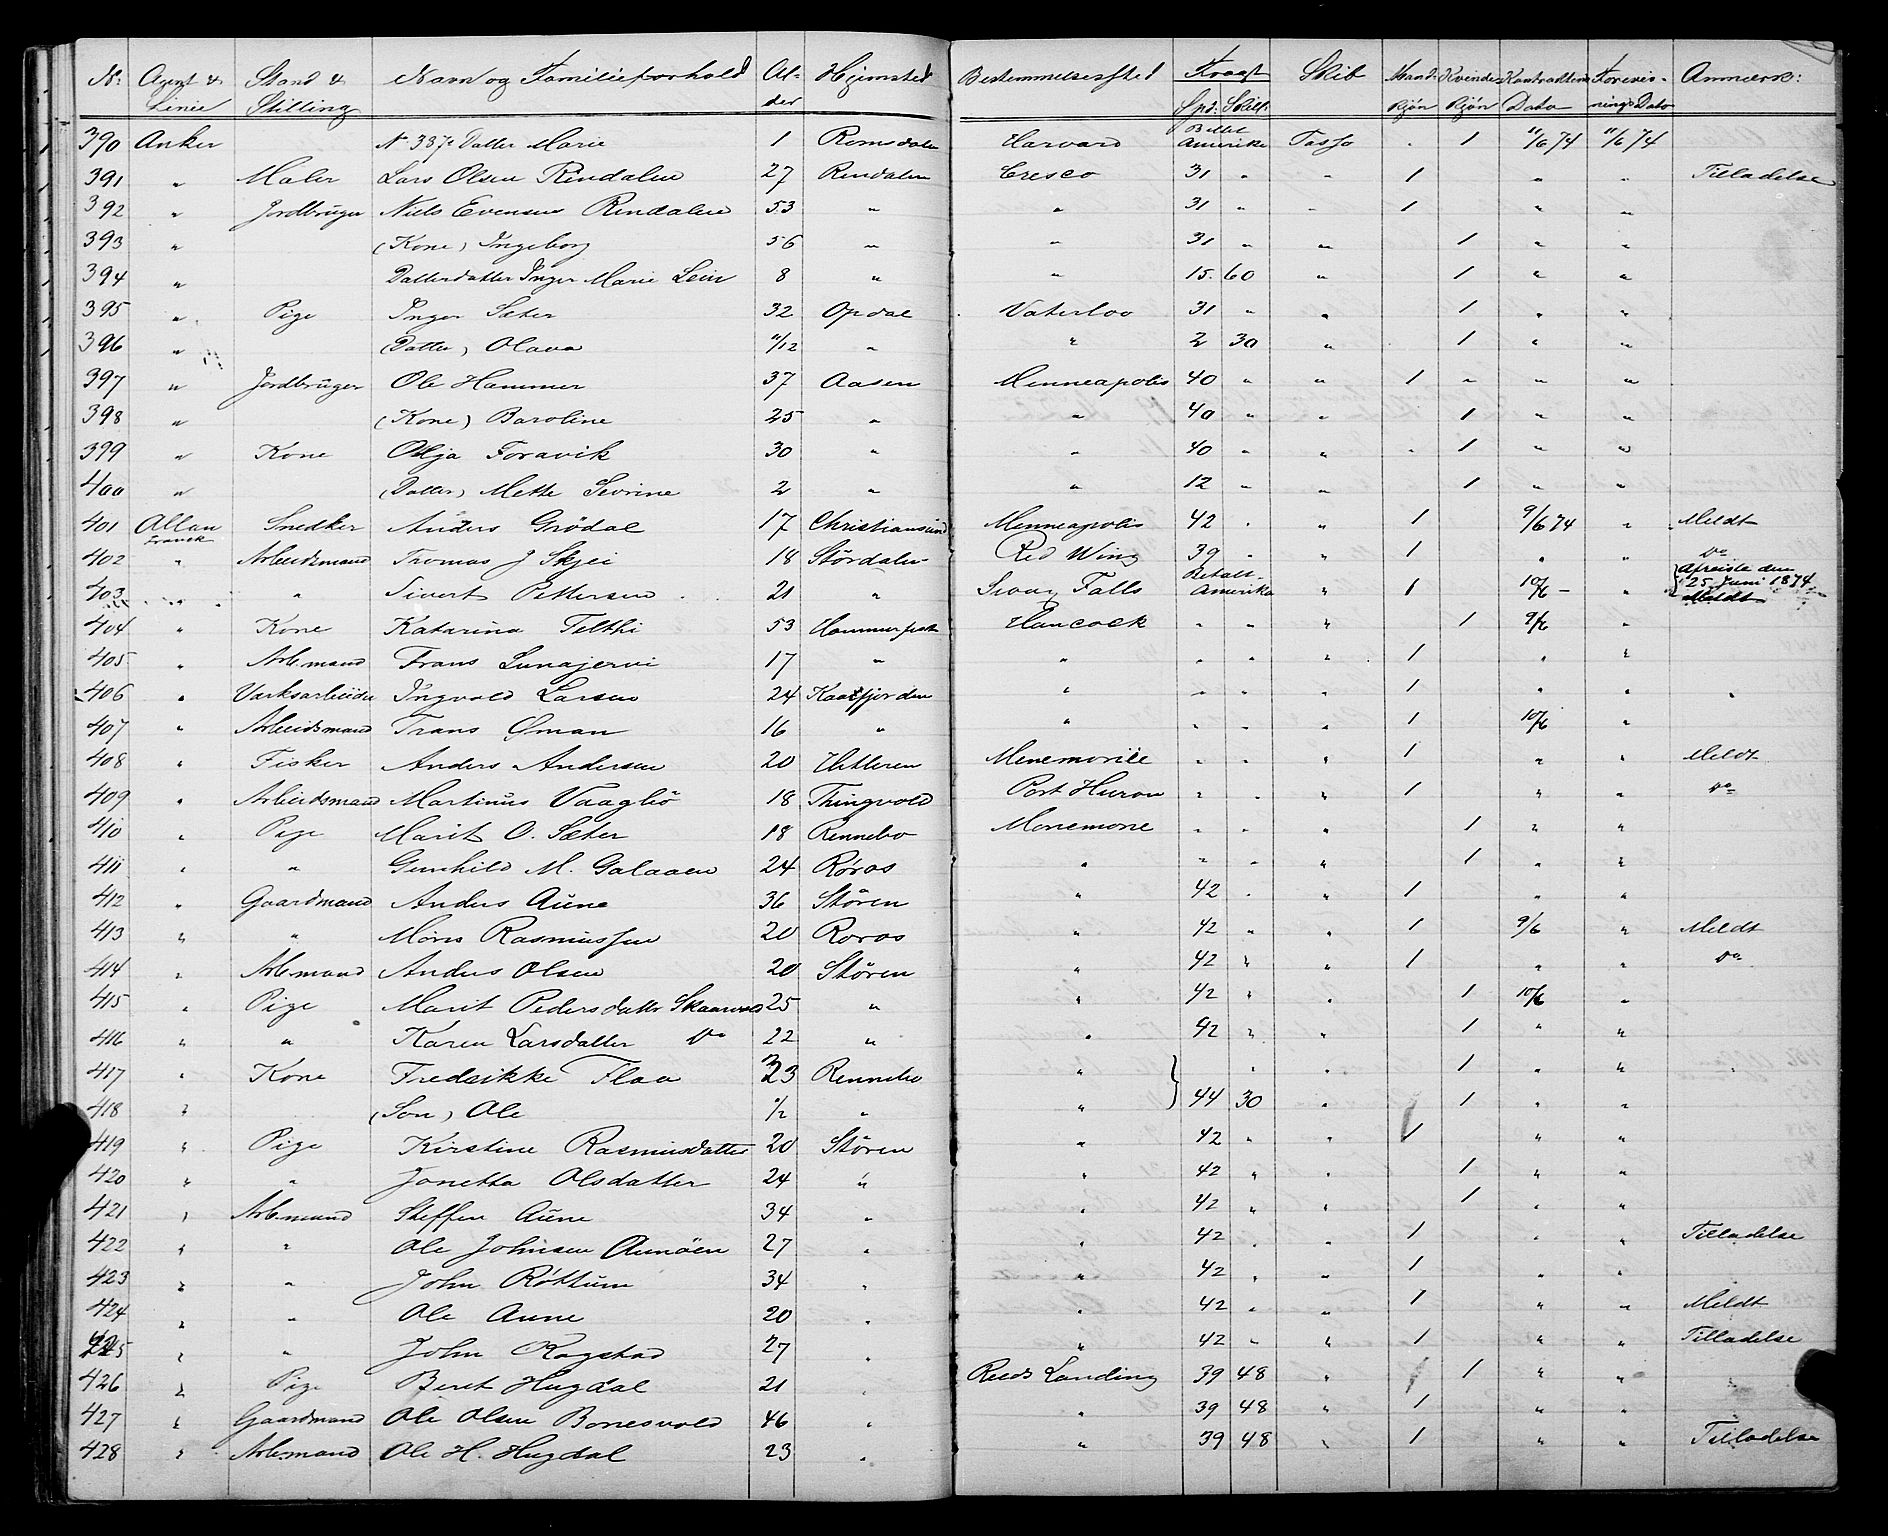 Nr. Agent & Linie Stand & Stilling Navn og Familieforhold Alder Hjemsted Bestemmelsessted Fragt Spd. Skill. Skib Mandkjøn Kvindekjøn Kontraktens Dato Forevisnings Dato Anmærk:
390 Anker Nr. 387s Datter Marie 1 Romsdalen Harvard Billet Amerika Tasso " 1 11/6 74 11/6 74
391 " Maler Lars Olsen Rindalen 27 Rindalen Cresco 31 " " 1 " " Tilladelse
392 " Jordbruger Niels Evensen Rindalen 53 " " 31 " " 1 " "
393 " (Kone) Ingeborg 56 " " 31 " " 1 " "
394 " Datterdatter Inger Marie Lein 8 " " 15. 60 " 1 " "
395 " Pige Inger Sæter 32 Opdal Vaterloo 31 " " 1 " "
396 " (Datter) Olava 11/12 " " 2 30 " 1 " "
397 " Jordbruger Ole Hammer 37 Aasen Minneapolis 40 " " 1 " " "
398 " (Kone) Baroline 25 " " 40 " " 1 " "
399 " Kone Olja Foravik 30 " " 40 " " " 1 " "
400 " (Datter) Mette Sevrine 2 " " 12 " " 1 " "
401 Allan Franck Snedker Anders Grödal 17 Christiansund Minneapolis 42 " " 1 9/6 74 " Meldt
402 " Arbeidsmand Thomas J Skjei 18 Stördalen Red Wing 39 " " 1 " " Do
403 " " Sivert Pettersen 21 " Sioux Falls Betalt Amerika " 1 10/6 - " Afreiste den 25 Juni 1874 Meldt
404 " Kone Katarina Telthi 53 Hammerfest Hancock " " " 1 9/6 "
405 " Arb.mand Frans Lunajervi 17 " " " " " 1 " "
406 " Værksarbeider Ingvold Larsen 24 Kaafjorden " " " " 1 " " "
407 " Arbeidsmand Frans Öman 16 " " " " " 1 10/6 "
408 " Fisker Anders Andersen 20 Hitteren Menemonie " " " 1 " " Meldt
409 " Arbeidsmand Martinus Vaagbö 18 Thingvold Port Huron " " " 1 " " Do
410 " Pige Marit O. Sæter 18 Rennebo Menemonie " " " 1 " "
411 " " Gunhild M. Galaaen 24 Röros " " " " 1 " "
412 " Gaardmand Anders Aune 36 Stören " 42 " " 1 " "
413 " " Möns Rasmussen 20 Roros " 42 " " 1 9/6 " Meldt
414 " Arb.mand Anders Olsen 20 Stören " 42 " " 1 " " Do
415 " Pige Marit Pedersdatter Skaarvold 25 " " 42 " " 1 10/6 "
416 " " Karen Larsdatter Do 22 " " 42 " " 1 " "
417 " Kone Fredrikke Flaa 23 Rennebo " " " 1 " " "
418 " (Son) Ole 1/2 " " 44 30 " 1 " "
419 " Pige Kirstine Rasmusdatter 20 Stören " 42 " " 1 " "
420 " " Jonetta Olsdatter 24 " " 42 " " 1 " "
421 " Arb.mand Steffen Aune 34 " " 42 " " 1 " "
422 " " Ole Johnsen Aunöen 27 " " 42 " " 1 " " Tilladelse
423 " " John Röttum 34 " " 42 " " 1 " "
424 " " Ole Aune 20 " " 42 " " 1 " " Meldt
425 " " John Rogstad 27 " " 42 " " 1 " " Tilladelse
426 " Pige Beret Hugdal 21 " Reeds Landing 39 48 " 1 " "
427 " Gaardmand Ole Olsen Bonesvold 46 " " 39 48 " 1 " "
428 " Arb.mand Ole H. Hugdal 23 " " 39 48 " 1 " " Tilladelse